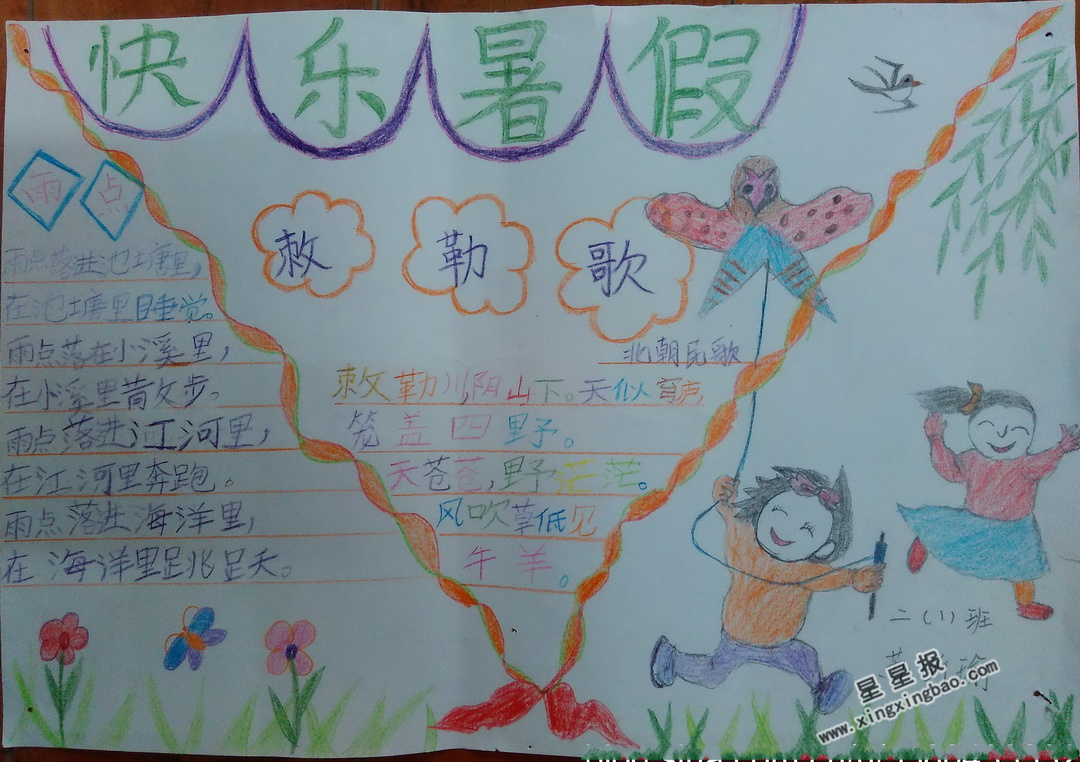 快乐暑假
雨点
雨点落进池塘里，
在池塘里睡觉。
雨点落在小溪里，
在小溪里散步。
雨点落进江河里，
在江河里奔跑。
雨点落进海洋里，
在海洋里跳跃。
敕勒歌
北朝民歌
敕勒川，阴山下。天似穹庐，
笼盖四野。
天苍苍，野茫茫。
风吹草低见
牛羊。
二（1）班
瑜
星星报
www.xingxingbao.com